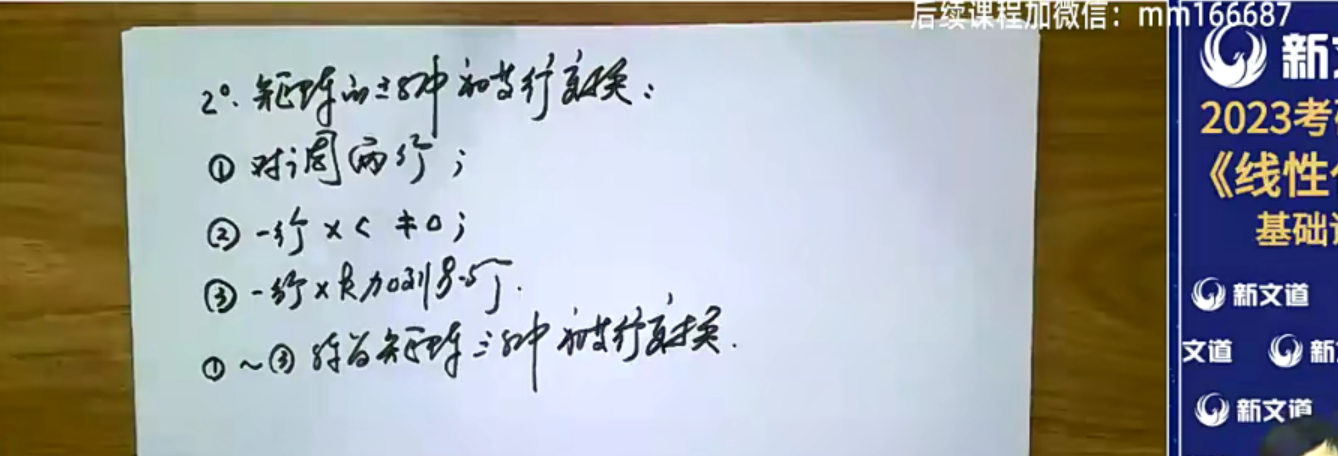 后续课程加微信：mm166687
2°. 矩阵的三种初等行变换：
① 对调两行；
② 一行×c ≠0；
③ 一行×k加到另一行.
①~③ 称为矩阵三种初等行变换.
新文
2023考
《线性
基础
新文道
文道 新
新文道